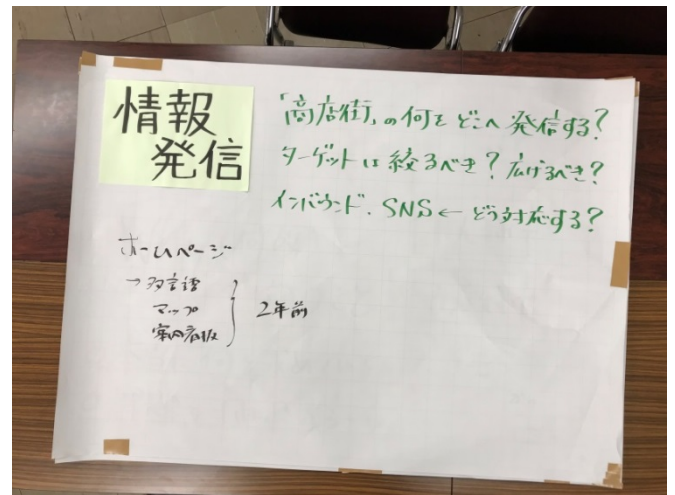 情報
発信
「商店街」の何をどこへ発信する?
ターゲットは絞るべき?広げるべき?
インバウンド、SNS←どう対応する?
ホームページ
→多言語
マップ
案内看板
2年前